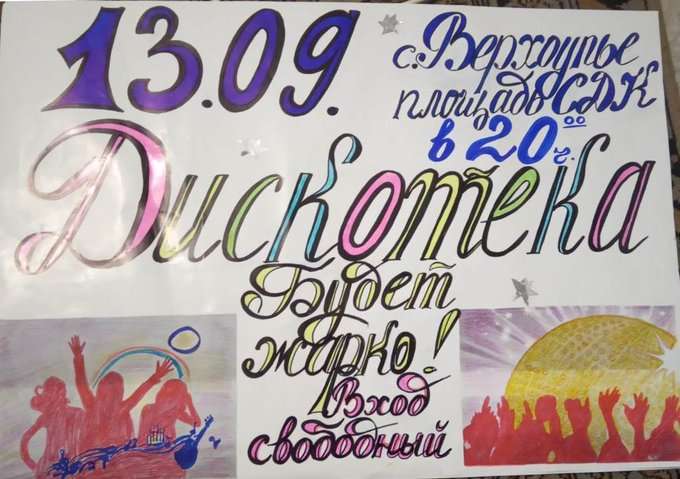 13.09.
с. Верхоупье
площадь СДК
в 20 00 ч.
Дискотека
Будет
жарко!
Вход
свободный